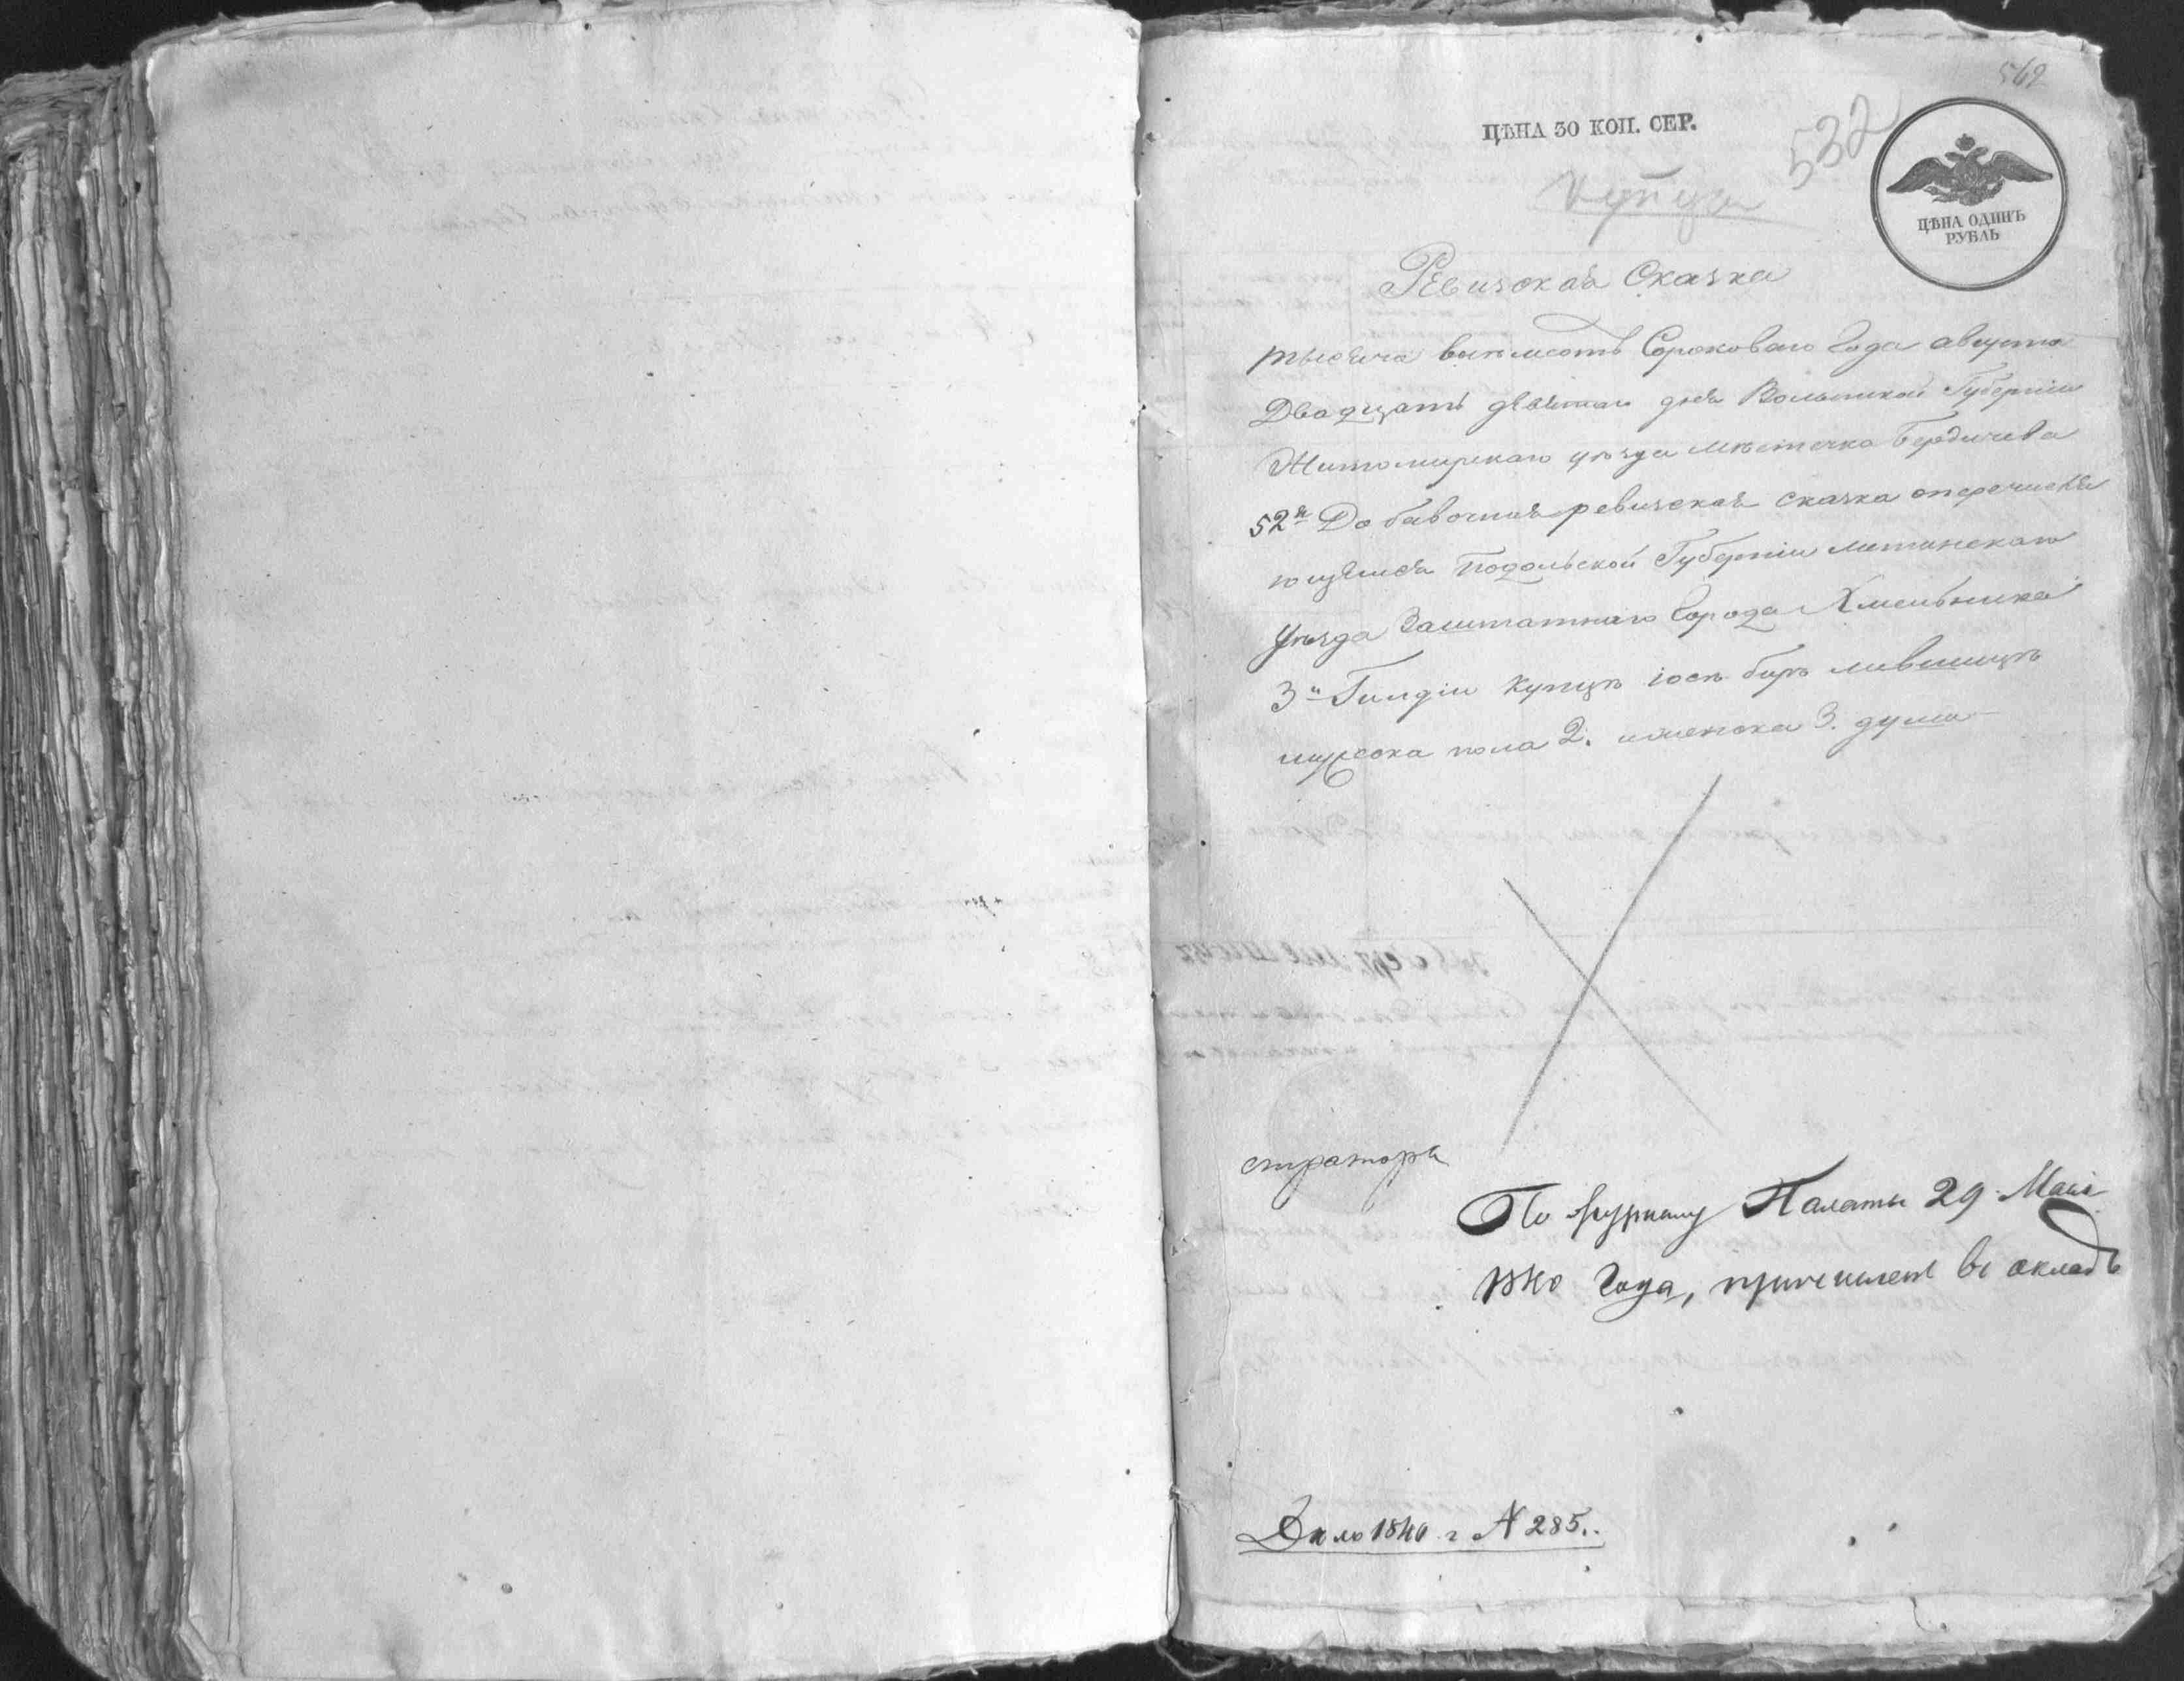 562
ЦѢНА 30 КОП. СЕР.
532
купцы
ЦѢНА ОДИНЪ
РУБЛЬ
Ревизская Сказка
тысеча восмсотъ Сороковаго Года августа
Двадцать девятаго дня Волынской Губерніи
Житомирскаго уѣзда мѣстечка Бердичева
52я Добавочная ревизская сказка о перечисля
ющемся Подольской Губерніи литинскаго
уѣзда Заштатнаго Города Хмельника
3й Гилдіи купцѣ іосѣ берѣ лившицѣ
мужеска пола 2. и женска 3. души
стратора
По журналу Палаты 29 Маія
1840 Года, причисленъ въ окладъ
Дѣло 1840 г N 285.